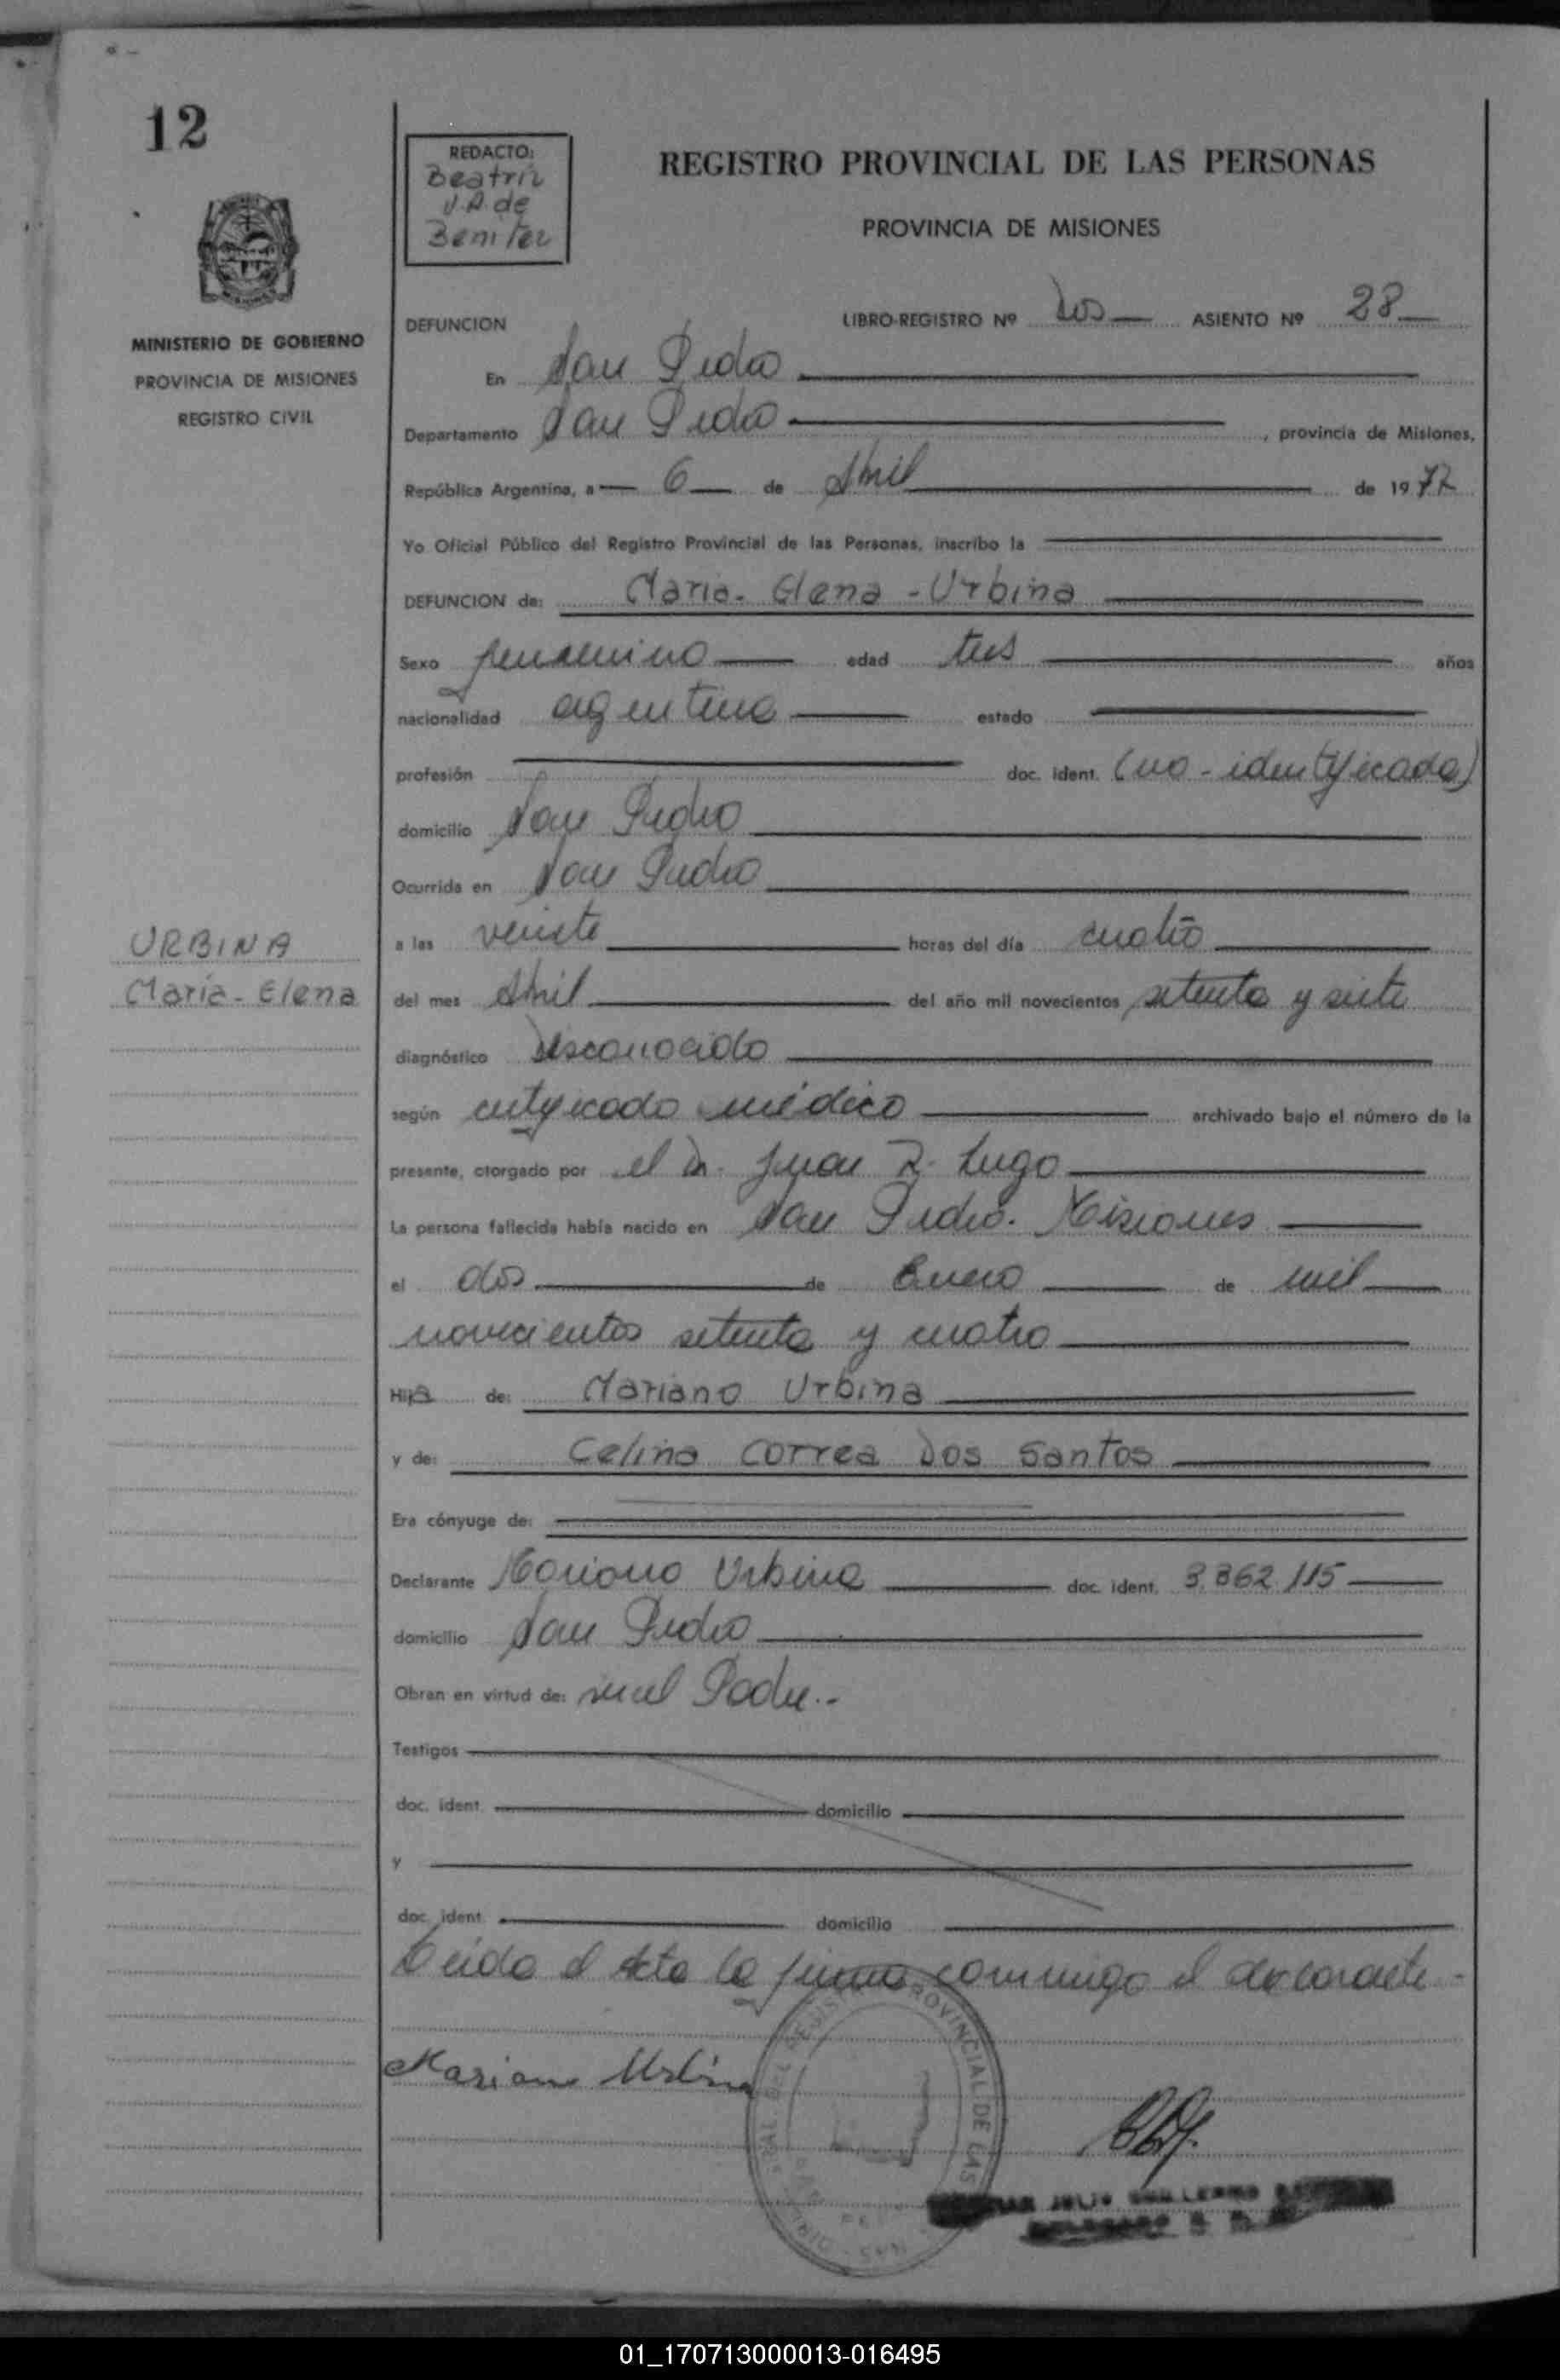 12
REDACTO:
Beatriz
V.A. de
Benitez
REGISTRO PROVINCIAL DE LAS PERSONAS
PROVINCIA DE MISIONES
MINISTERIO DE GOBIERNO
PROVINCIA DE MISIONES
REGISTRO CIVIL
DEFUNCION
LIBRO-REGISTRO Nº Dos ASIENTO Nº 28
En San Pedro
Departamento San Pedro, provincia de Misiones,
República Argentina, a 6 de Abril de 1977
Yo Oficial Público del Registro Provincial de las Personas, inscribo la
DEFUNCION de: Maria - Elena - Urbina
Sexo femenino edad tres años
nacionalidad argentina estado
profesión doc. ident. (no - identificada)
domicilio San Pedro
Ocurrida en San Pedro
a las veinte horas del día cuatro
URBINA
María - Elena
del mes Abril del año mil novecientos setenta y siete
diagnóstico Desconocido
según certificado médico archivado bajo el número de la
presente, otorgado por el Dr. Juan R. Lugo
La persona fallecida había nacido en San Pedro. Misiones
el dos de Enero de mil
novecientos setenta y cuatro
Hija de: Mariano Urbina
y de: Celina Correa Dos Santos
Era cónyuge de:
Declarante Mariano Urbina doc. ident. 3.862.115
domicilio San Pedro
Obran en virtud de: ser el Padre.-
Testigos
doc. ident. domicilio
y
doc. ident. domicilio
Leida el Acta la firma conmigo el declarante -
Mariano Urbina
PROVINCIAL DE LAS
JULIO GUILLERMO